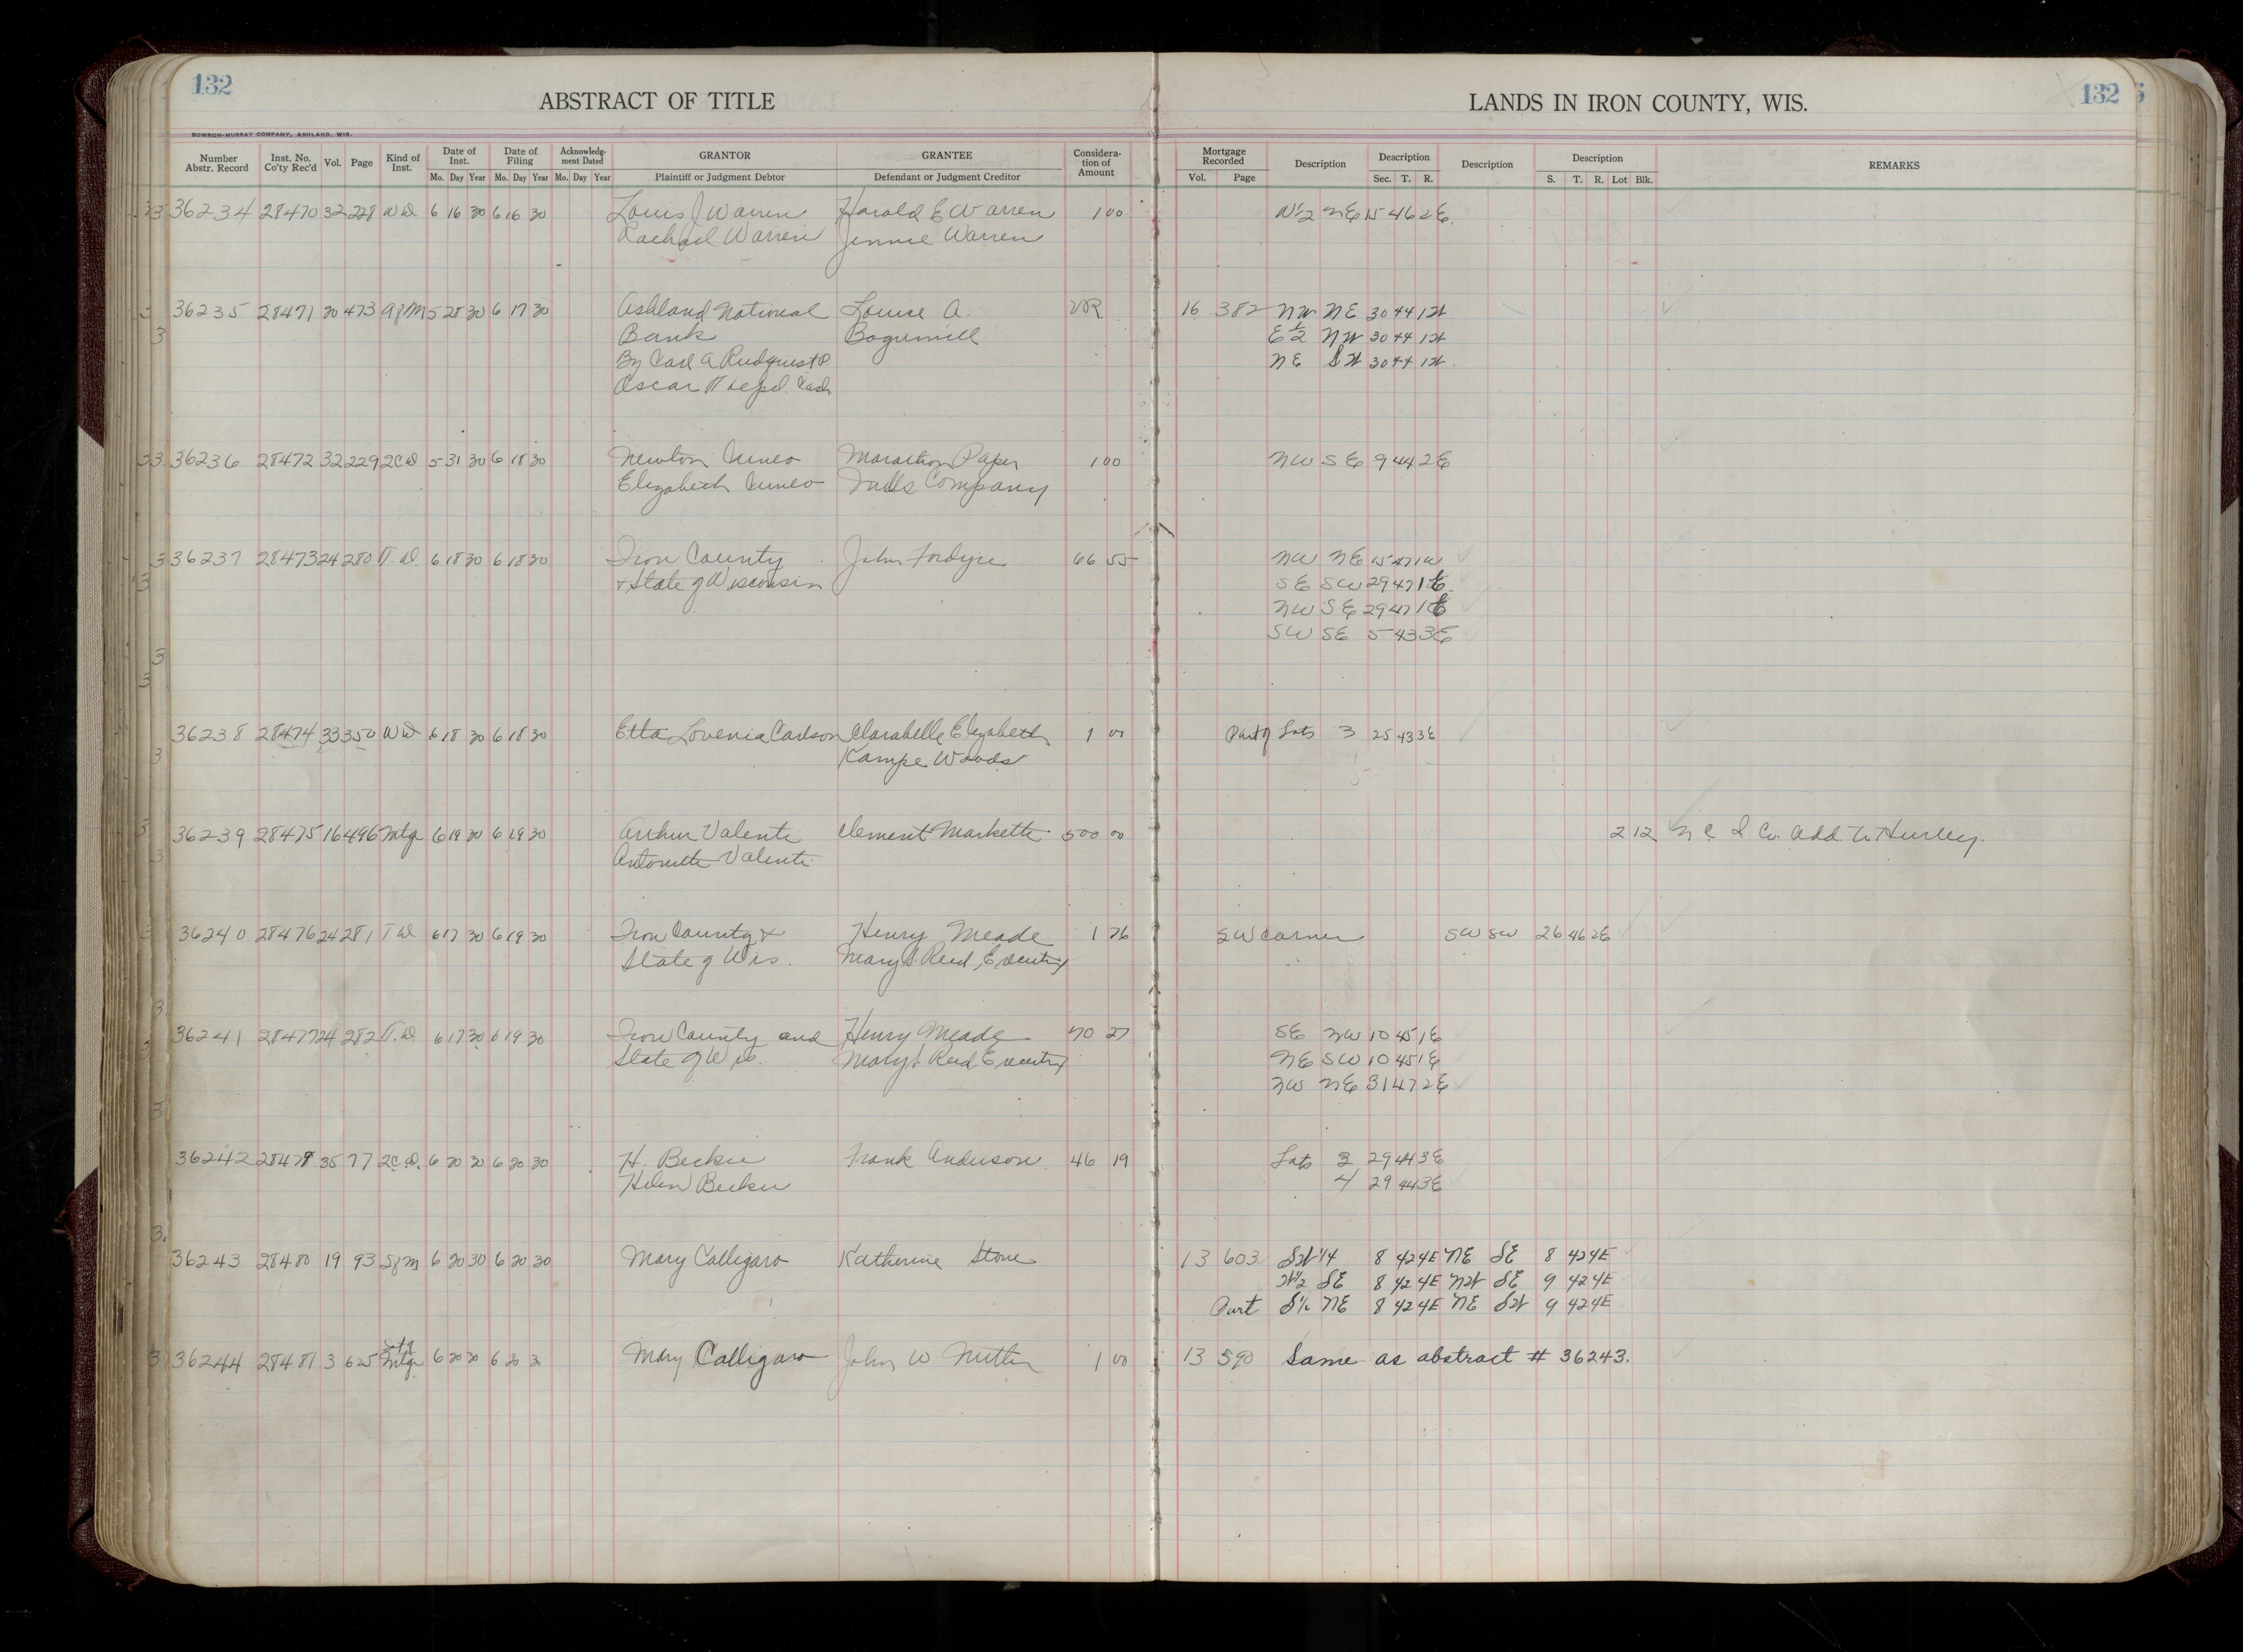 132
ABSTRACT OF TITLE
LANDS IN IRON COUNTY, WIS.
132
BOWRON-MURRAY COMPANY, ASHLAND, WIS.
Number Abstr. Record Inst. No. Co'ty Rec'd Vol. Page Kind of Inst. Date of Inst. Date of Filing Acknowledgment Dated GRANTOR GRANTEE Consideration of Amount Mortgage Recorded Description Description Description Description REMARKS
Mo. Day Year Mo. Day Year Mo. Day Year Plaintiff or Judgment Debtor Defendant or Judgment Creditor Vol. Page Sec. T. R. S. T. R. Lot Blk.
36234 28470 32 228 WD 6 16 30 6 16 30 Louis J Warren Harold E Warren 1 00 N½ NE 15 46 2E
Rachael Warren Jennie Warren
36235 28471 20 473 AofM 5 28 30 6 17 30 Ashland National Louise A. VR 16 382 NW NE 30 44 1W
Bank Bogumill E½ NW 30 44 1W
By Carl A Rudquist P. NE SW 30 44 1W
Oscar Cash
36236 28472 32 229 2CD 5 31 30 6 18 30 Newton Cuneo Marathon Paper 1 00 NW SE 9 44 2E
Elizabeth Cuneo Mills Company
36237 28473 24 280 T.D. 6 18 30 6 18 30 Iron County John Fordyce 66 55 NW NE 15 47 1W
& State of Wisconsin SE SW 29 47 1E
NW SE 29 47 1E
SW SE 5 43 3E
36238 28474 33 350 WD 6 18 30 6 18 30 Etta Lovenia Carlson Clarabelle Elizabeth 1 00 Part of Lots 3 25 43 3E
Kampe Woods
36239 28475 16 496 Mtg 6 19 30 6 19 30 Arthur Valenti Clement Markette 500 00 2 12 N C I. Co. Add. to Hurley.
Antonette Valenti
36240 28476 24 281 TD 6 17 30 6 19 30 Iron County & Henry Meade 1 76 SW Corner SW SW 26 46 2E
State of Wis. Mary S. Reed, Executrix
36241 28477 24 282 T.D. 6 17 30 6 19 30 Iron County and Henry Meade 70 27 SE NW 10 45 1E
State of Wis. Mary S. Reed Executrix NE SW 10 45 1E
NW NE 31 47 2E
36242 28478 35 77 2C.D. 6 20 30 6 20 30 H. Becker Frank Anderson 46 19 Lots 3 29 44 3E
Helen Becker 4 29 44 3E
36243 28480 19 93 SofM 6 20 30 6 20 30 Mary Calligaro Katherine Stone 13 603 SW¼ 8 42 4E NE SE 8 42 4E
W½ SE 8 42 4E NW SE 9 42 4E
Part S½ NE 8 42 4E NE SW 9 42 4E
36244 28481 3 625 Mtg 6 20 30 6 20 3 Mary Calligaro John W 1 00 13 590 Same as abstract # 36243.